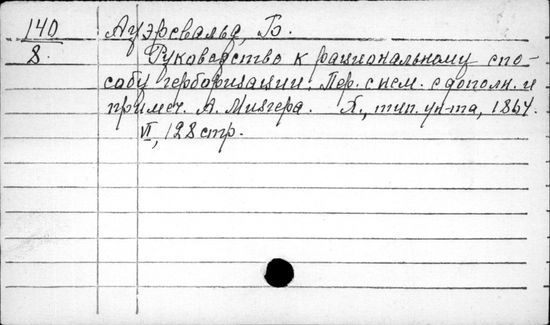 140 Ауэрсвальд, Б.
8. Руководство к рациональному спо-
собу гербаризации. Пер. с нем. с дополн. и
примеч. А. Мизгера. К., тип. ун-та, 1864.
VI, 128 стр.